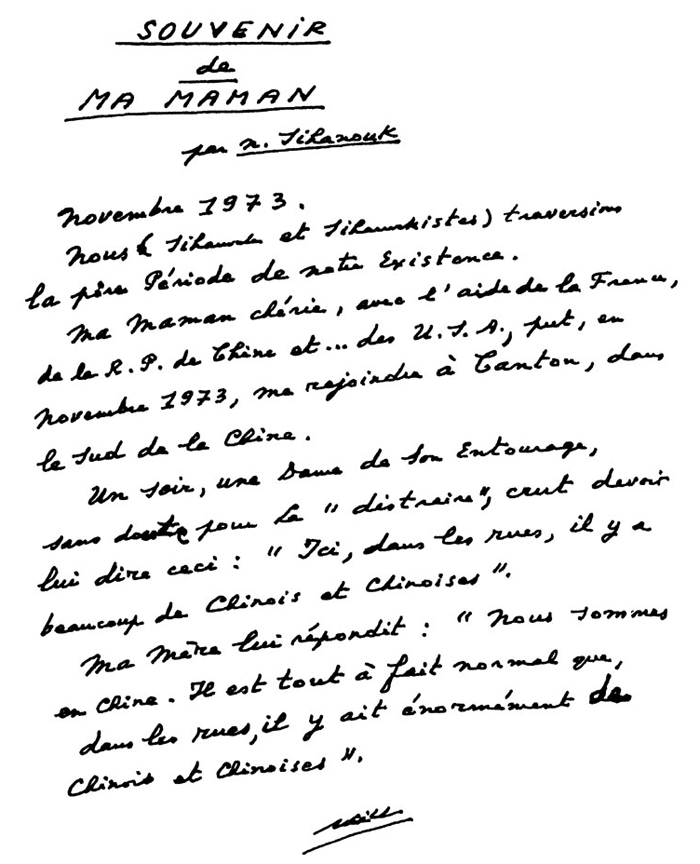 SOUVENIR
de
MA MAMAN
par N. Sihanouk
Novembre 1973.
Nous (Sihanouk et Sihanoukistes) traversions
la pire Période de notre Existence.
Ma Maman chérie, avec l'aide de la France,
de la R. P. de Chine et... des U.S.A., put, en
Novembre 1973, me rejoindre à Canton, dans
le Sud de la Chine.
Un soir, une Dame de Son Entourage,
sans doute pour La "distraire", crut devoir
lui dire ceci : "Ici, dans les rues, il y a
beaucoup de Chinois et Chinoises".
Ma Mère lui répondit : "Nous sommes
en Chine. Il est tout à fait normal que,
dans les rues, il y ait énormément de
Chinois et Chinoises".